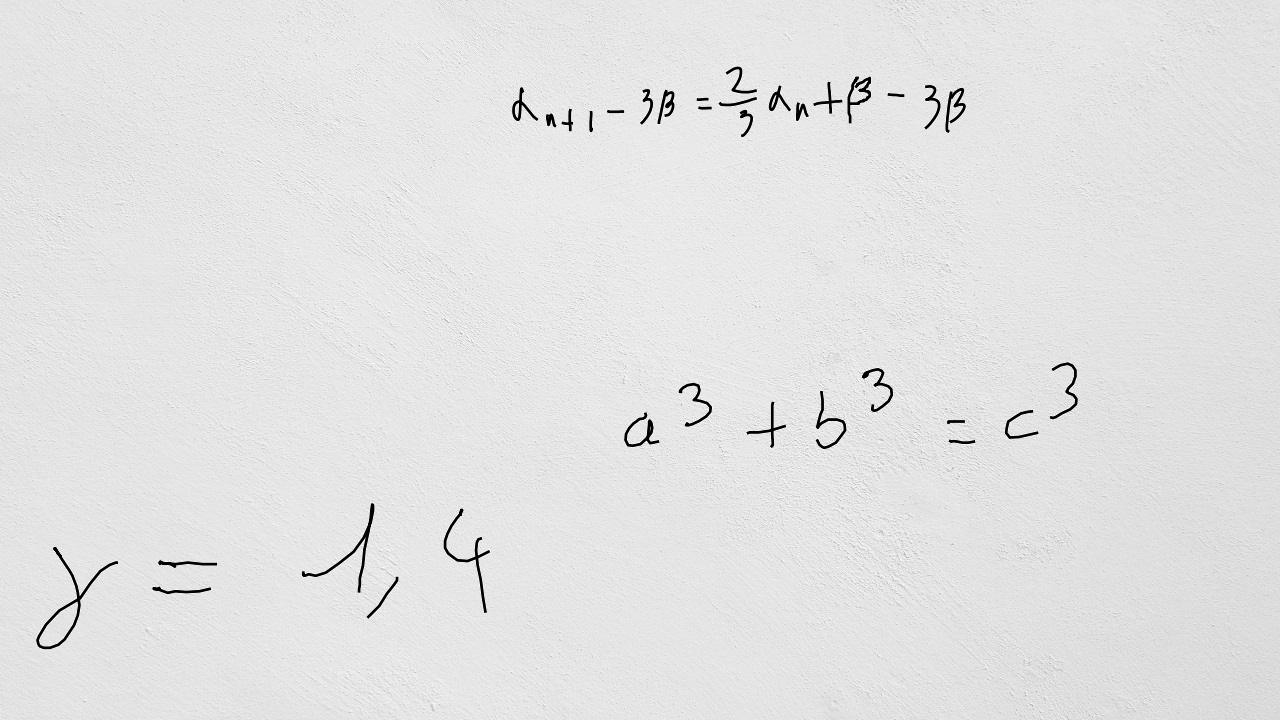 α_{n+1} - 3β = \frac{2}{3} α_n + β - 3β
a^3 + b^3 = c^3
γ = 1,4